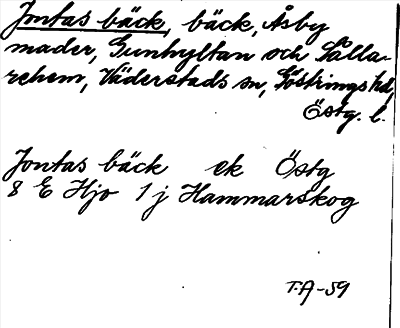 Jontas bäck, bäck, Åsby
mader, Gunhyltan och Kålla-
rehem, Väderstads sn, Göstrings hd,
Östg. l.
Jontas bäck ek Östg
8 E Hjo 1 j Hammarskog
T.A-59